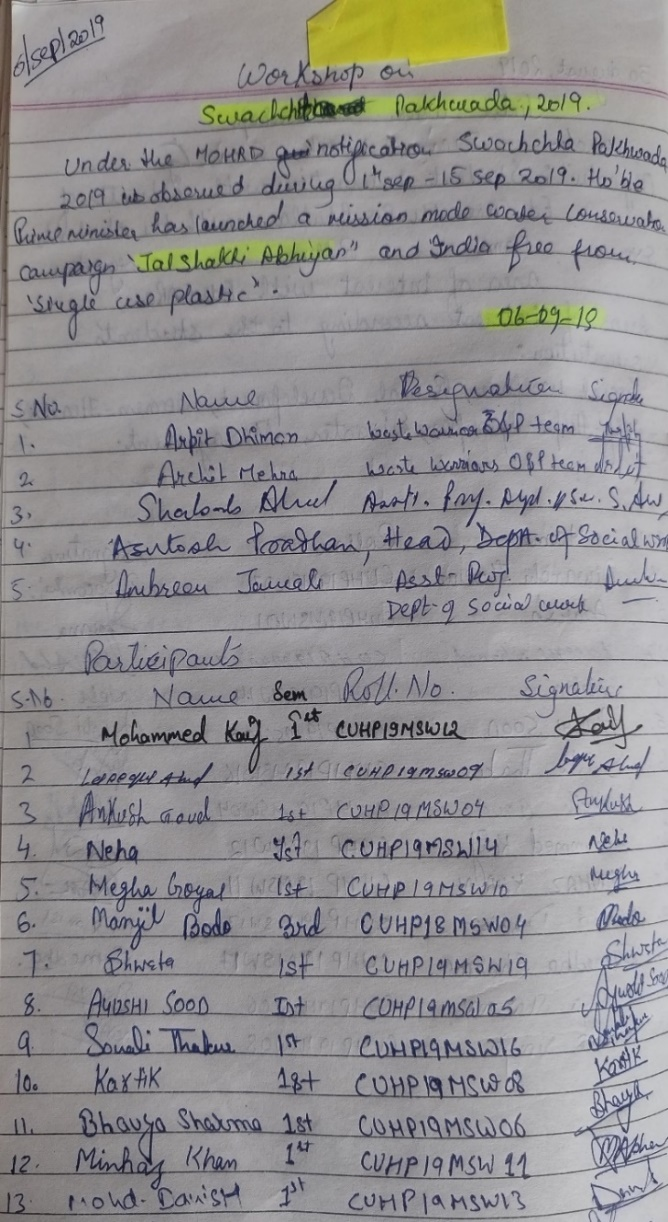 6/sep/2019
Workshop on
Swachchta Pakhwada, 2019.
Under the MOHRD notification Swachchta Pakhwada
2019 is observed during 1st sep - 15 sep 2019. Ho'ble
Prime minister has launched a mission mode water conservation
campaign "Jal Shakti Abhiyan" and India free from
'single use plastic'.
06-09-19
S.No. Name Designation Signature
1. Arpit Dhiman Waste Warriors team
2. Archit Mehra Waste Warriors team
3.
4. Asutosh Pradhan, Head, Deptt. of Social work
5. Ambreen Jamali Asst. Prof.
Dept. of Social work
Participants
S.No. Name Sem Roll. No. Signature
1 Mohammed Kaif 1st CUHP19MSW12 Kaif
2 1st CUHP19MSW09
3 Ankush Goud 1st CUHP19MSW04 Ankush
4. Neha 1st CUHP19MSW14 Neha
5. Megha Goyal 1st CUHP19MSW10 Megha
6. Manjil Bodo 3rd CUHP18MSW04 Bodo
7. Shweta 1st CUHP19MSW19 Shweta
8. AYUSHI SOOD Ist CUHP19MSW05 Ayushi Sood
9. Sonali Thakur 1st CUHP19MSW16
10. Kartik 1st CUHP19MSW08 Kartik
11. Bhavya Sharma 1st CUHP19MSW06 Bhavya
12. Minhaj Khan 1st CUHP19MSW11
13. Mohd. Danish 1st CUHP19MSW13